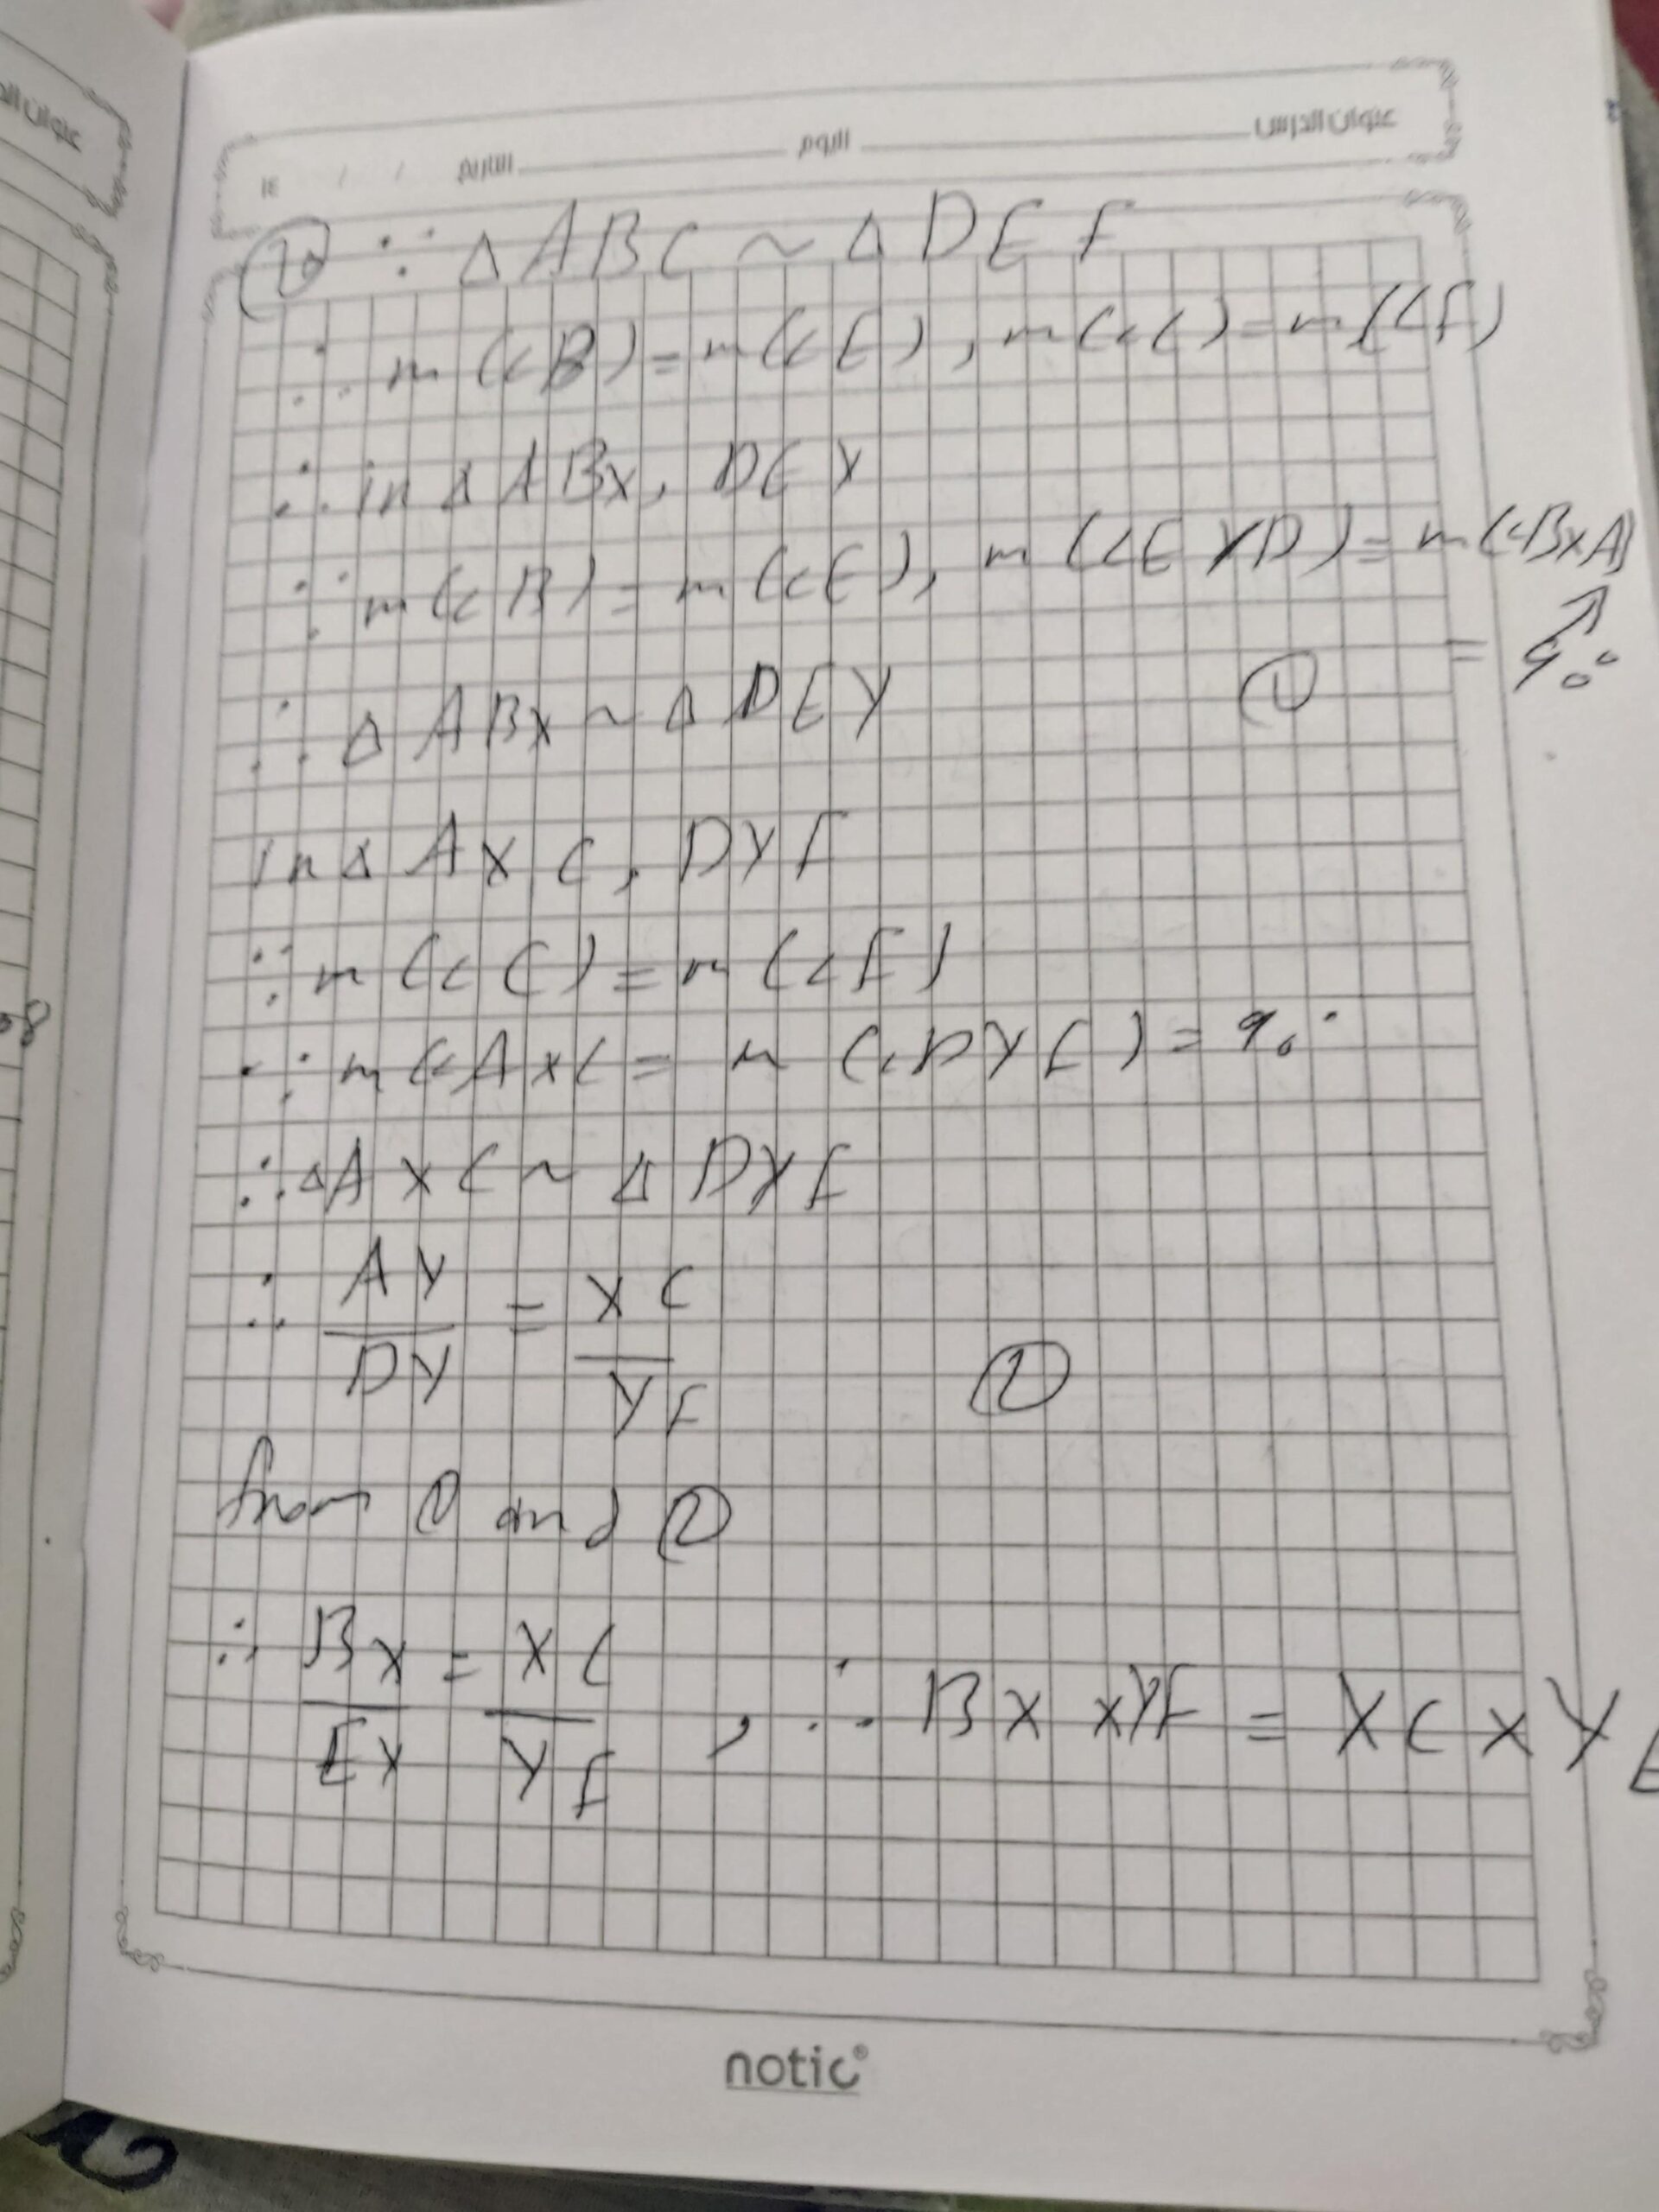 عنوان الدرس اليوم التاريخ / / ١٤
∵ △ABC ~ △DEF
∴ m(<B) = m(<E), m(<C) = m(<F)
∴ in △ABX, DEY
∵ m(<B) = m(<E), m(<EYD) = m(<BXA)
= 90°
∴ △ABX ~ △DEY ①
in △AXC, DYF
∵ m(<C) = m(<F)
∵ m(<AXC = m(<DYF) = 90°
∴ △AXC ~ △DYF
∴ AY/DY = XC/YF ②
from ① and ②
∴ BX/EY = XC/YF, ∴ BX × YF = XC × YE
notic®